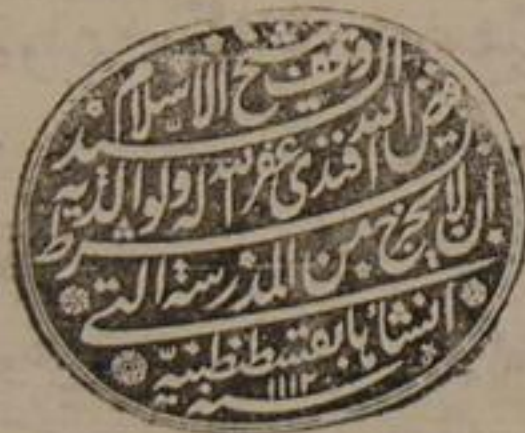 وقف شيخ الاسلام السيد
فيض الله افندى غفر الله له ولوالديه
بشرط أن لا يخرج من المدرسة التى
انشأها بقسطنطنيّه
سنه ١١١٢